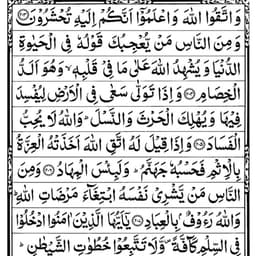 وَاتَّقُوا اللّٰهَ وَاعْلَمُوْٓا اَنَّكُمْ اِلَيْهِ تُحْشَرُوْنَ ﴿۲۰۳﴾
وَمِنَ النَّاسِ مَنْ يُّعْجِبُكَ قَوْلُهٗ فِي الْحَيٰوةِ
الدُّنْيَا وَيُشْهِدُ اللّٰهَ عَلٰى مَا فِيْ قَلْبِهٖ ۙ وَهُوَ اَلَدُّ
الْخِصَامِ ﴿۲۰۴﴾ وَاِذَا تَوَلّٰى سَعٰى فِي الْاَرْضِ لِيُفْسِدَ
فِيْهَا وَيُهْلِكَ الْحَرْثَ وَالنَّسْلَ ؕ وَاللّٰهُ لَا يُحِبُّ
الْفَسَادَ ﴿۲۰۵﴾ وَاِذَا قِيْلَ لَهُ اتَّقِ اللّٰهَ اَخَذَتْهُ الْعِزَّةُ
بِالْاِثْمِ فَحَسْبُهٗ جَهَنَّمُ ؕ وَلَبِئْسَ الْمِهَادُ ﴿۲۰۶﴾ وَمِنَ
النَّاسِ مَنْ يَّشْرِيْ نَفْسَهُ ابْتِغَآءَ مَرْضَاتِ اللّٰهِ ؕ
وَاللّٰهُ رَءُوْفٌۢ بِالْعِبَادِ ﴿۲۰۷﴾ يٰٓاَيُّهَا الَّذِيْنَ اٰمَنُوا ادْخُلُوْا
فِي السِّلْمِ كَآفَّةً ۪ وَلَا تَتَّبِعُوْا خُطُوٰتِ الشَّيْطٰنِ ؕ